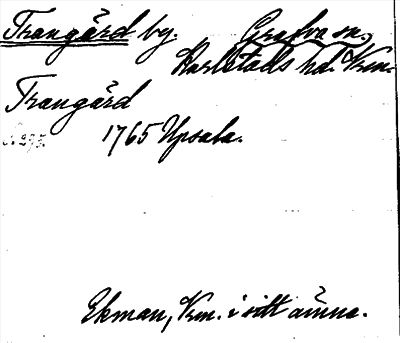 Trangärd by. Grafva sn.,
Karlstads hd. Vrm.
Trangärd
1765 Upsala.
Ekman, Vrm. i sitt ämne.